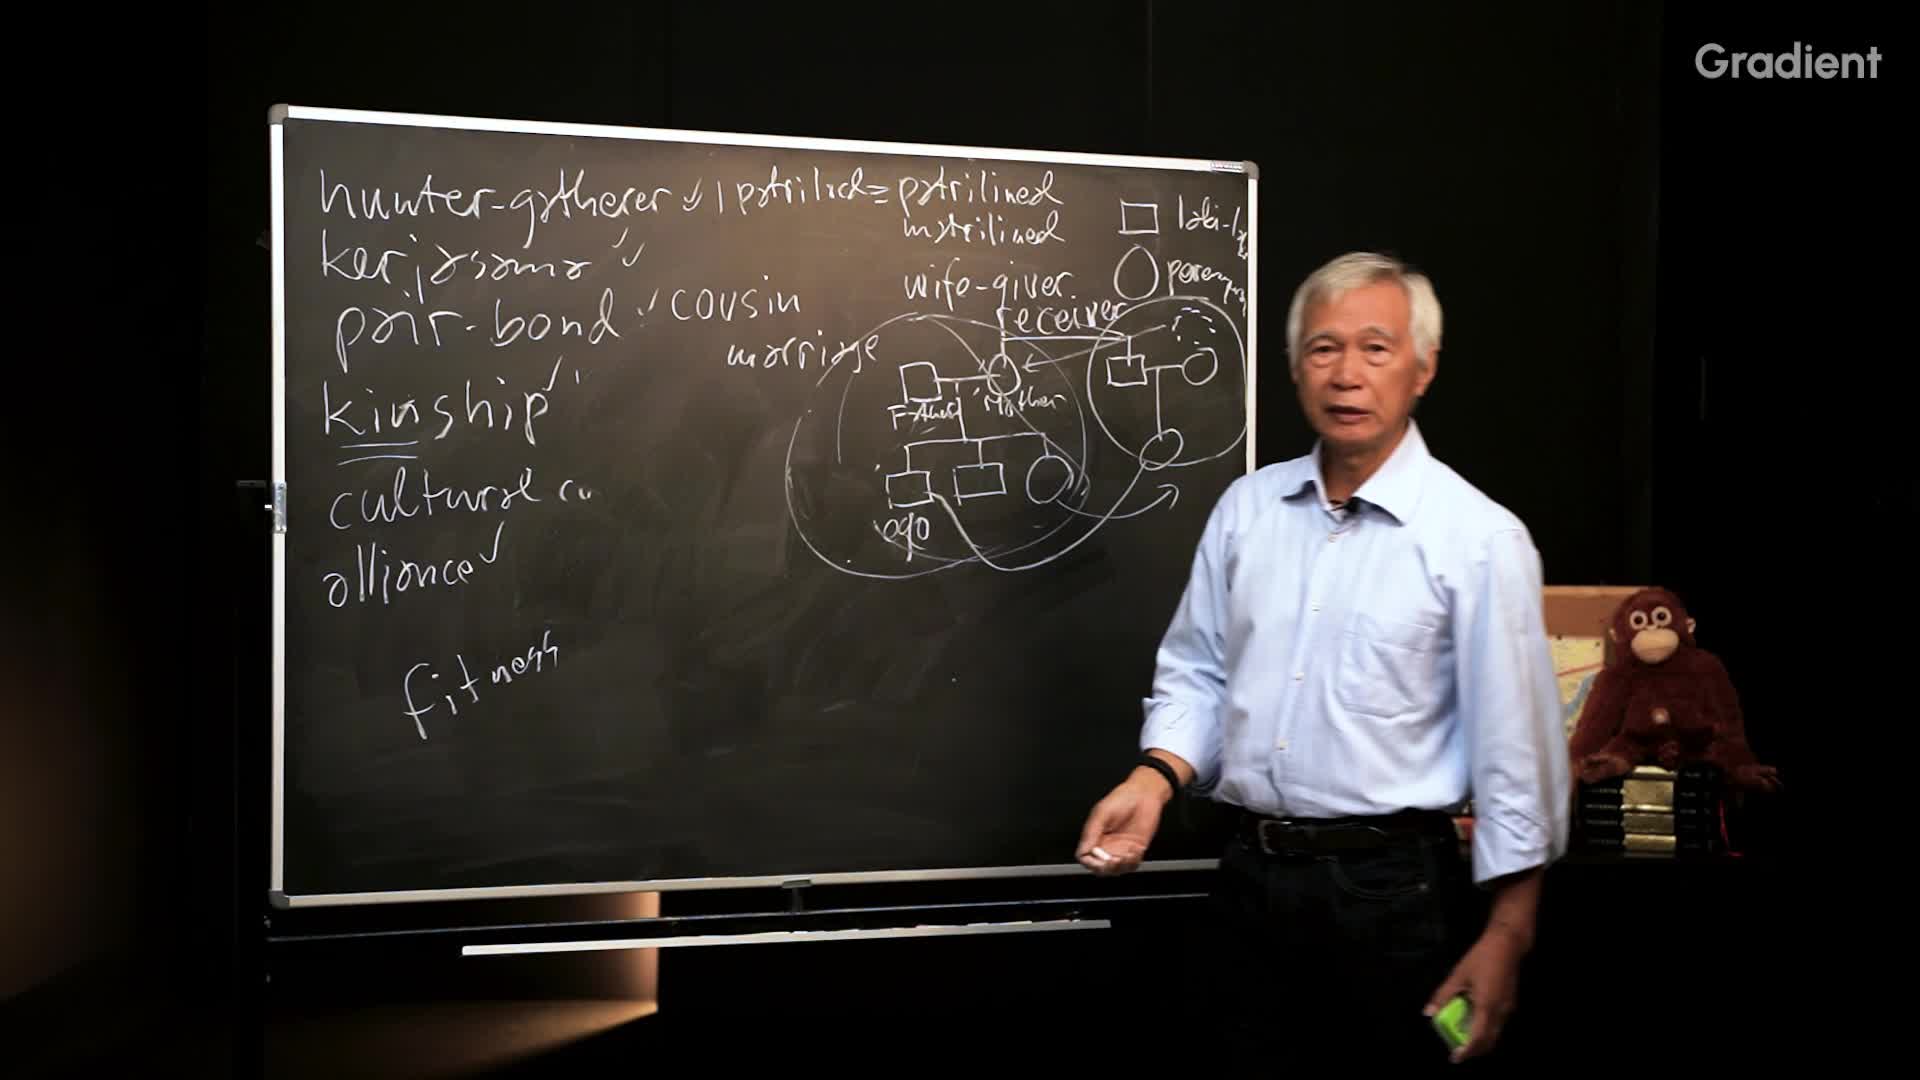 Gradient
hunter-gatherer ✓ | patrilocal = patrilineal
matrilineal
kerjasama ✓✓
pair-bond ✓ cousin
marriage
kinship ✓
cultural
alliance ✓
fitness
wife-giver
receiver
laki-laki
perempuan
Father Mother
ego